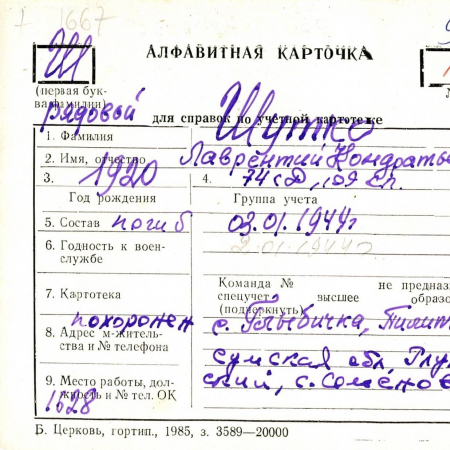 1667
Ш
АЛФАВИТНАЯ КАРТОЧКА
(первая бук-
ва фамилии)
рядовый
для справок по учетной картотеке
1. Фамилия Шутко
2. Имя, отчество Лаврентий Кондратье
3. 1920 4. 74 сд, 109 сп.
Год рождения Группа учета
5. Состав погиб 03.01.1944г
6. Годность к воен-
службе
2.01.1944г
Команда № не предназ
7. Картотека спецучет высшее образо
(подчеркнуть)
похоронен с. Глыбичка,
8. Адрес м-житель-
ства и № телефона
Сумская обл, Глу
9. Место работы, дол-
жность и № тел. ОК
ский, с. Семенов
1628
Б. Церковь, гортип., 1985, з. 3589—20000